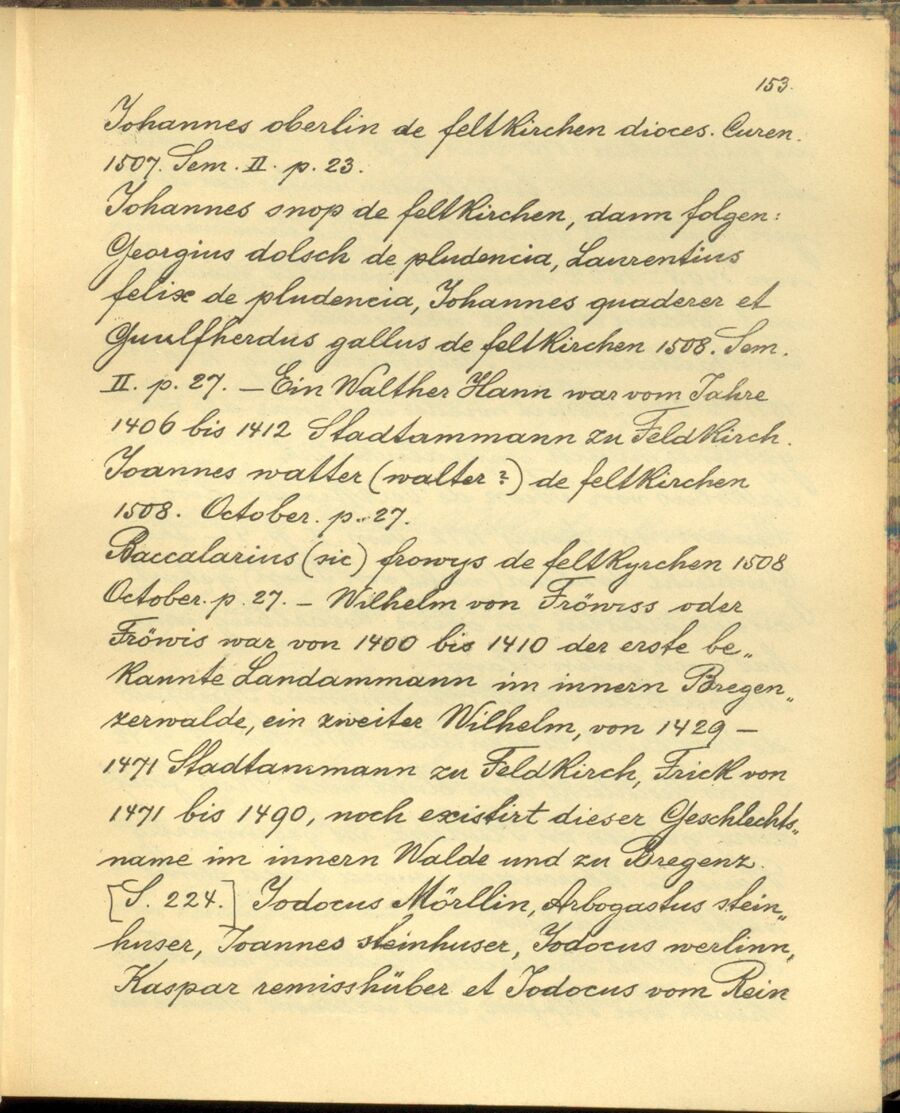 153.
Johannes oberlin de feltkirchen dioces. Curen.
1507. Sem. II. p. 23.
Johannes snop de feltkirchen, dann folgen:
Georgius dolsch de pludencia, Laurentius
felix de pludencia, Johannes quaderer et
Guulfherdus gallus de feltkirchen 1508. Sem.
II. p. 27. — Ein Walther Hann war vom Jahre
1406 bis 1412 Stadtammann zu Feldkirch.
Joannes watter (walter?) de feltkirchen
1508. October. p. 27.
Baccalarius (sic) frowys de feltkyrchen 1508
October. p. 27. — Wilhelm von Fröwiss oder
Fröwis war von 1400 bis 1410 der erste be„
kannte Landammann im innern Bregen„
zerwalde, ein zweiter Wilhelm, von 1429 —
1471 Stadtammann zu Feldkirch, Frick von
1471 bis 1490, noch existirt dieser Geschlechts„
name im innern Walde und zu Bregenz.
[S. 224.] Jodocus Mörllin, Arbogastus stein„
huser, Joannes steinhuser, Jodocus werlinn,
Kaspar remisshüber et Jodocus vom Rein